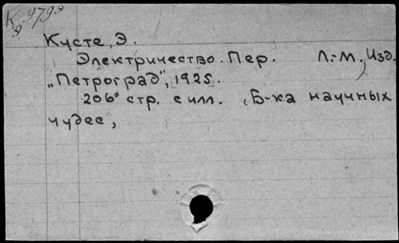 К 9793
Кусте, Э.
Электричество. Пер. Л.-М., Изд.
„Петроград", 1925.
206 стр. с илл. (Б-ка научных
чудес,